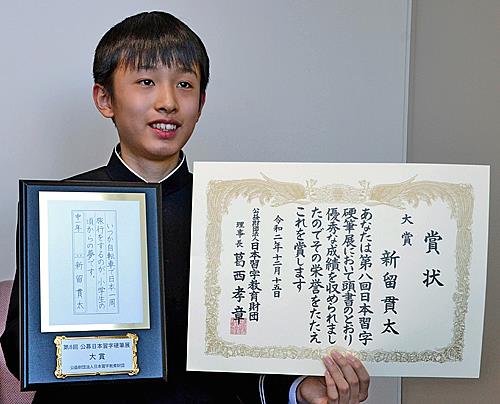 いつか自転車で日本一周
旅行をするのが、小学生の
頃からの夢です。
中年 新留貫太
第8回 公募日本習字硬筆展
大賞
公益財団法人日本習字教育財団
賞状
大賞
新留貫太
あなたは第八回日本習字
硬筆展において頭書のとおり
優秀な成績を収められまし
たのでその栄誉をたたえ
これを賞します
令和二年十二月十五日
公益財団法人日本習字教育財団
理事長 葛西孝章